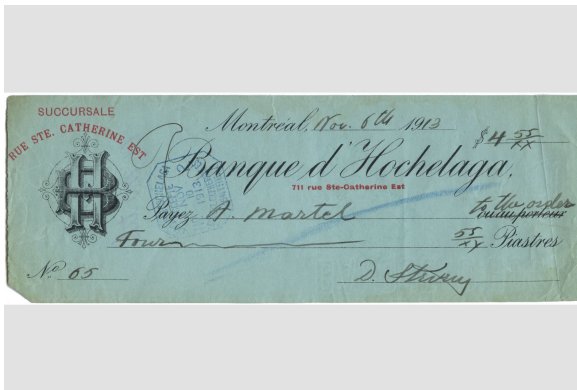 SUCCURSALE
RUE STE. CATHERINE EST
Montréal, Nov. 6th 1913
$4 55/xx
Banque d'Hochelaga,
711 rue Ste-Catherine Est
Payez A. Martel to the order
ou au porteur
Four 55/xx Piastres
No 65
D.